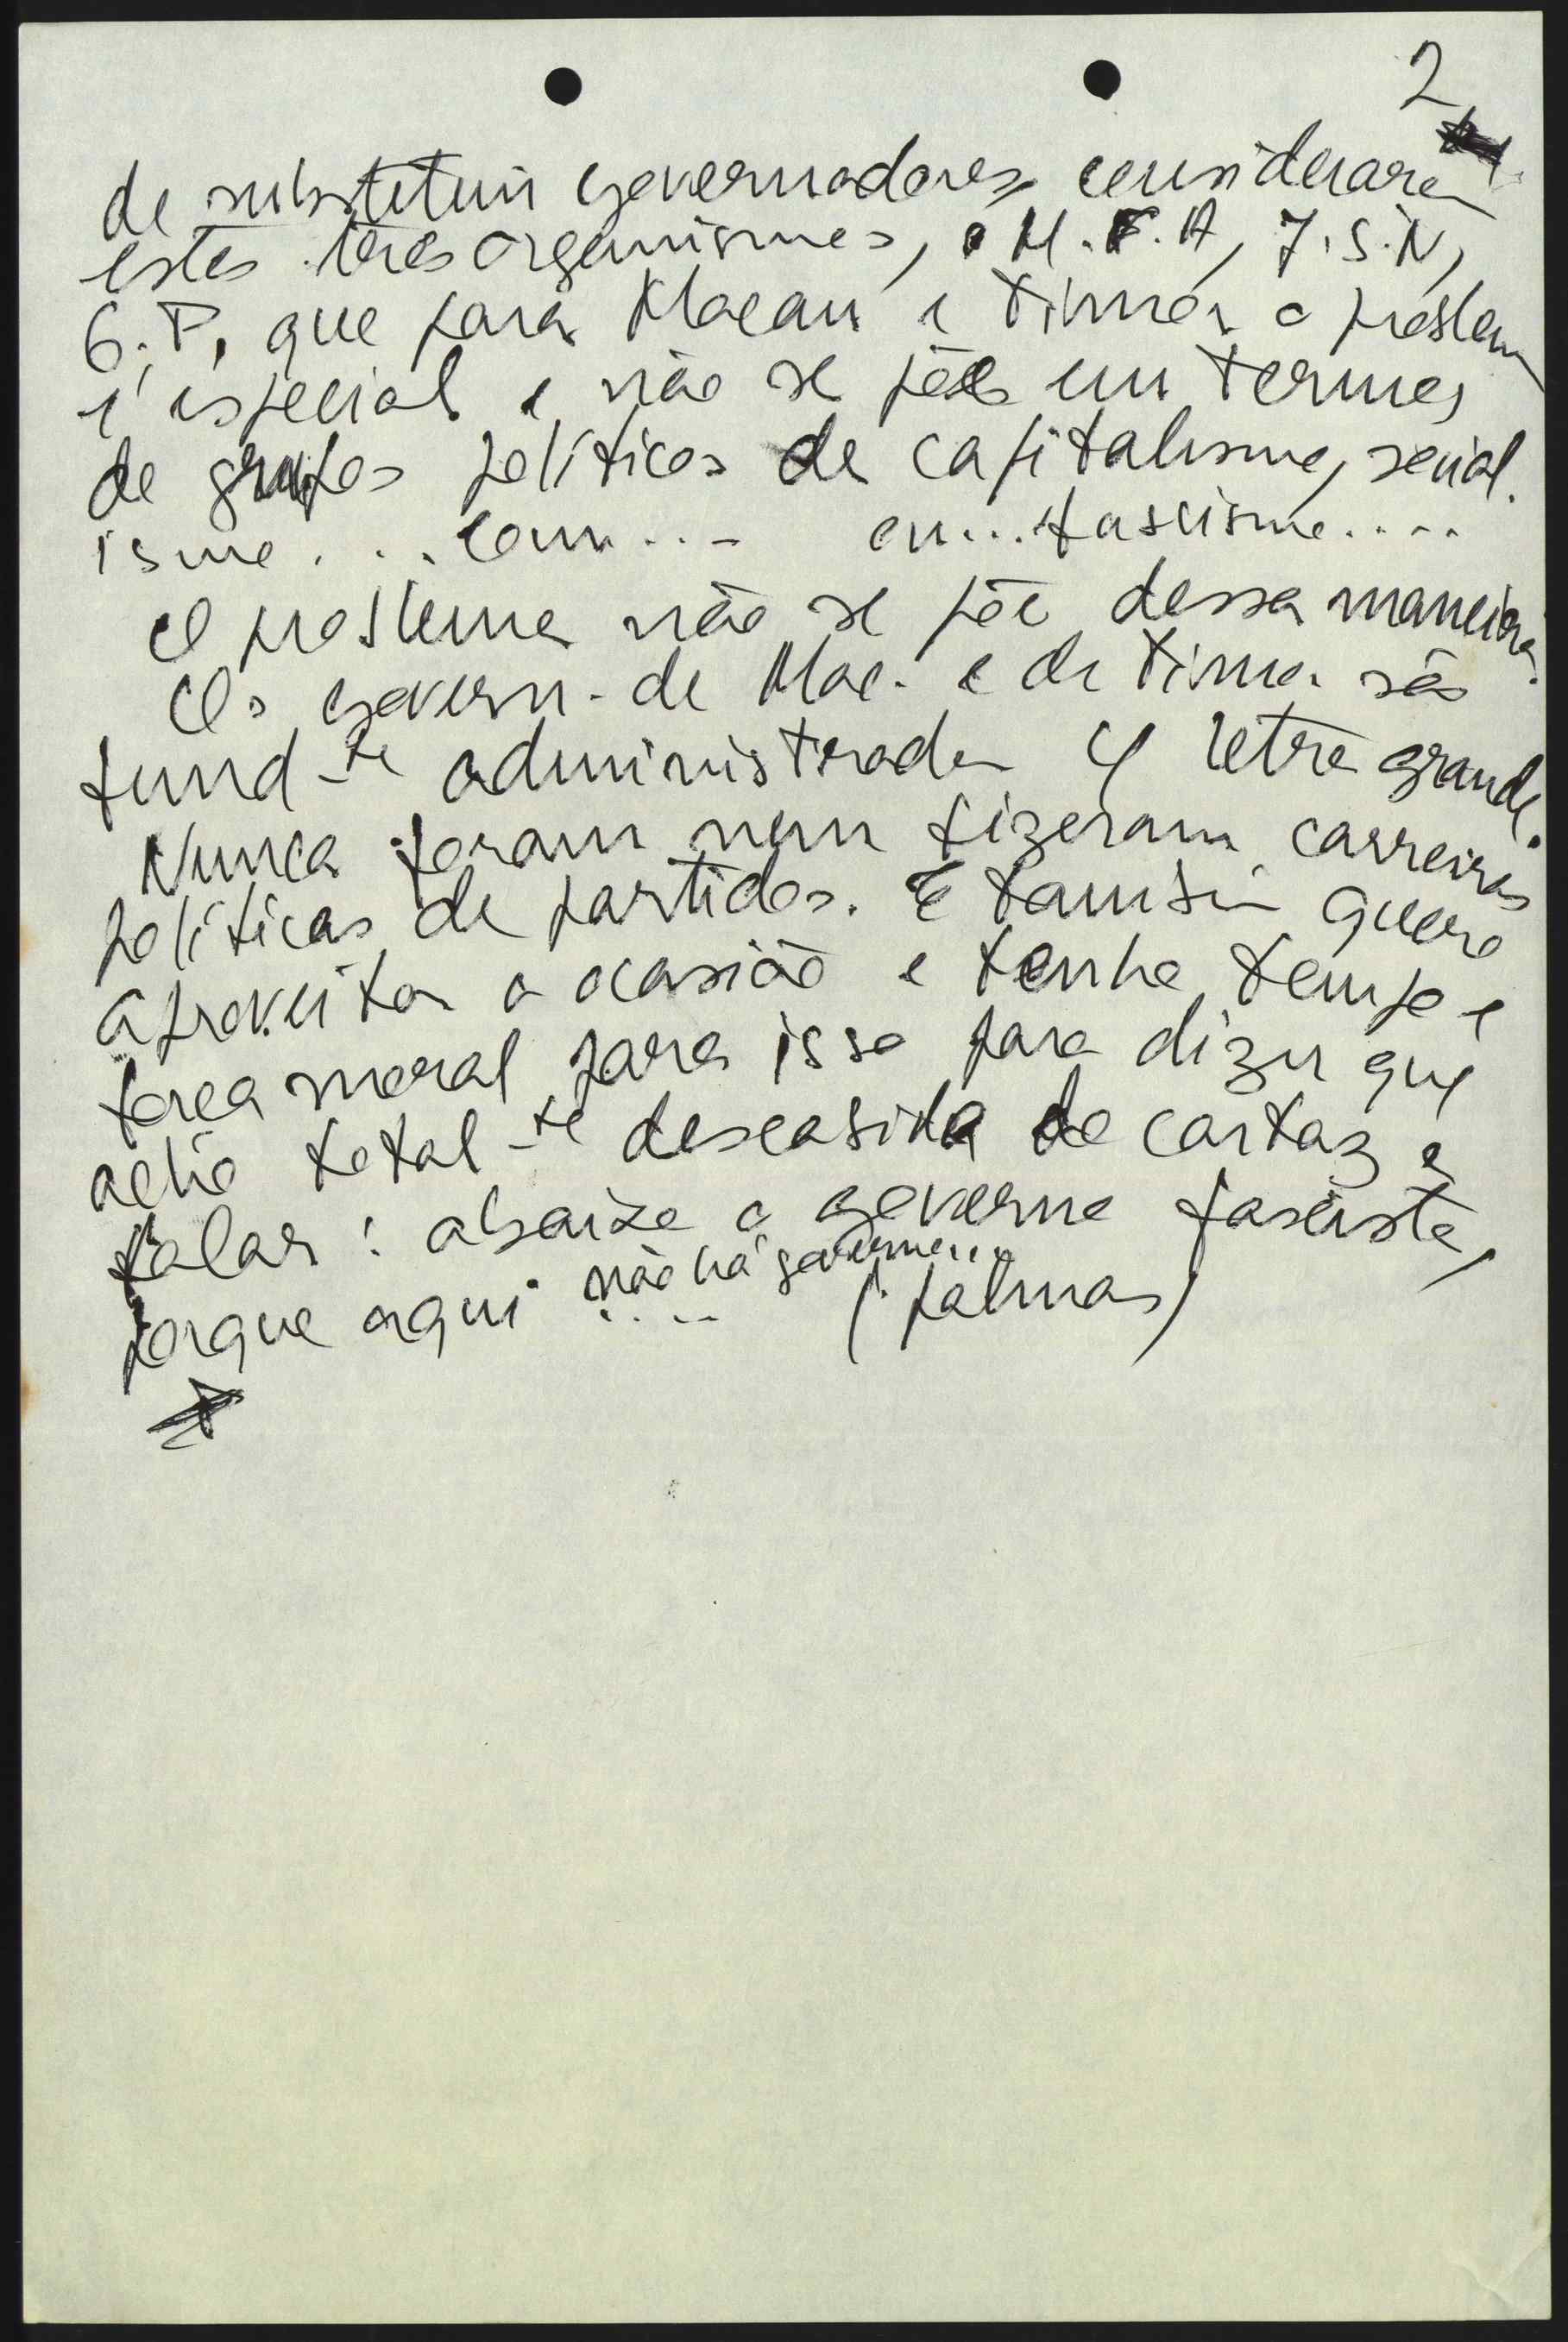 2
de substituir governadores consideraram
estes três organismos, o M.F.A, J.S.N,
G.P, que para Macau e Timor o problema
é especial e não se põe em termos
de grupos políticos de capitalismo, social.
ismo . . . com... ou... fascismo....
O problema não se põe dessa maneira.
Os govern. de Mac. e de Timor são
fund-te administrador c/ letra grande.
Nunca foram nem fizeram carreiras
políticas de partidos. E também quero
aproveitar a ocasião e tenho tempo e
força moral para isso para dizer que
acho total-te descabida do cartaz e
falar : abaixo o governo fascista,
porque aqui não há governo... .... (palmas)